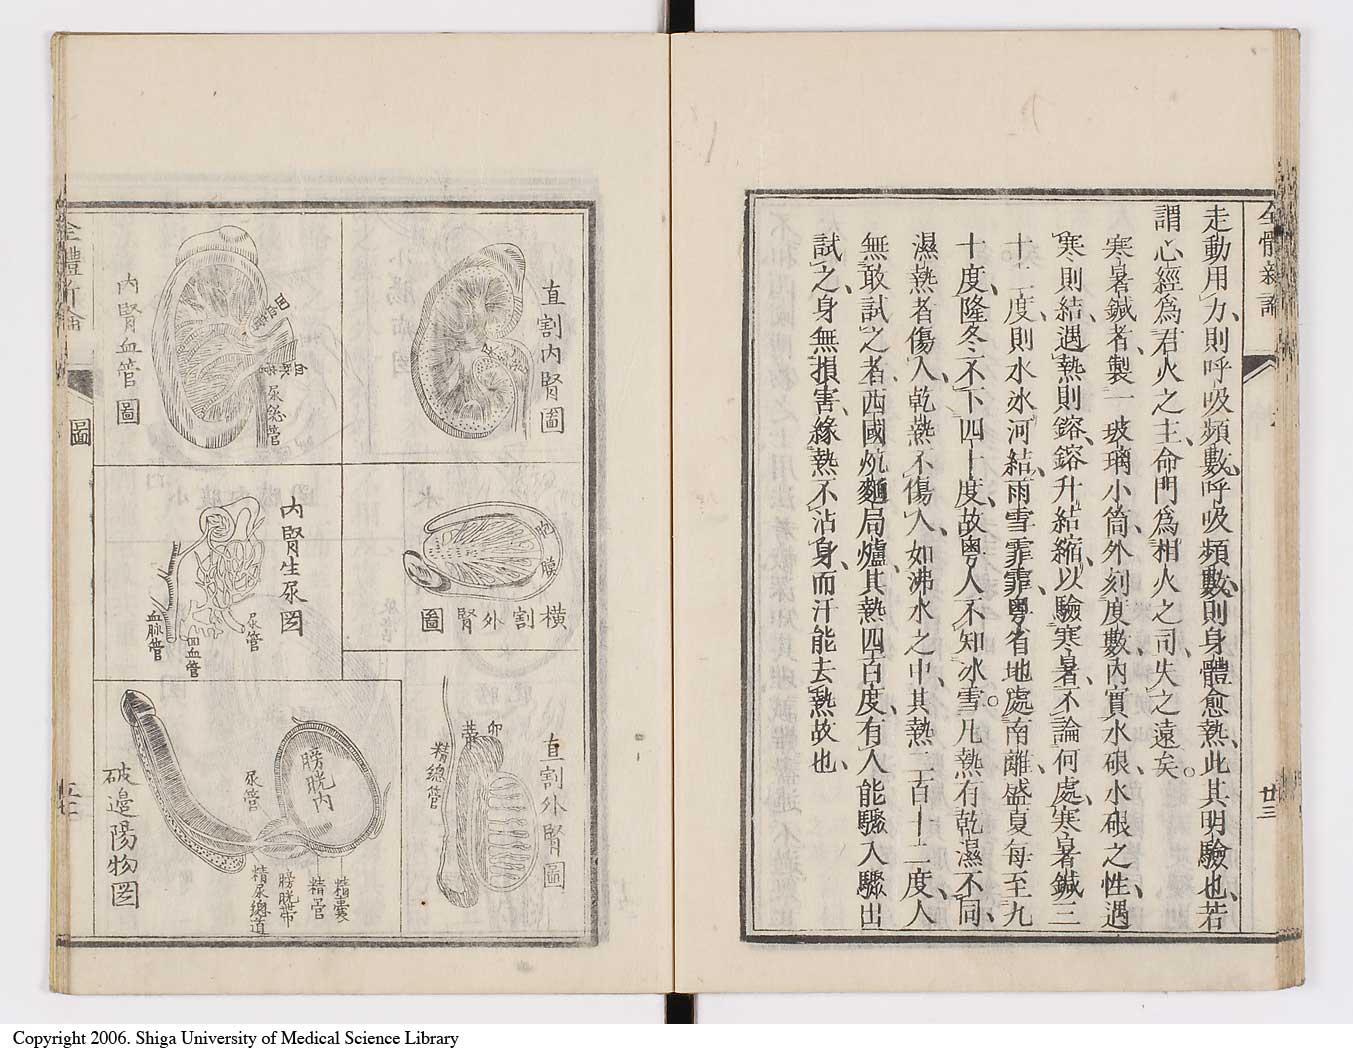 全體新論
廿三
走動用力、則呼吸頻數、呼吸頻數、則身體愈熱、此其明驗也、若
謂心經爲君火之主、命門爲相火之司、失之遠矣。
寒暑鍼者、製一玻璃小筒、外刻度數、內實水硍、水硍之性、遇
寒則結、遇熱則鎔、鎔升結縮、以驗寒暑、不論何處、寒暑鍼三
十二度、則水冰河結、雨雪霏霏、粵省地處南離、盛夏每至九
十度、隆冬不下四十度、故粵人不知冰雪。凡熱有乾濕不同、
濕熱者傷人、乾熱不傷人、如沸水之中、其熱二百十二度、人
無敢試之者、西國炕麵局爐、其熱四百度、有人能驟入驟出
試之、身無損害、緣熱不沾身、而汗能去熱故也、
直割內腎圖
內腎血管圖
尿總管
橫割外腎圖
胞膜
內腎生尿圖
尿管
回血管
血脉管
直割外腎圖
卵蒂
精總管
破邊陽物圖
膀胱內
尿管
精囊
精管
膀胱蒂
精尿總道
圖
Copyright 2006. Shiga University of Medical Science Library